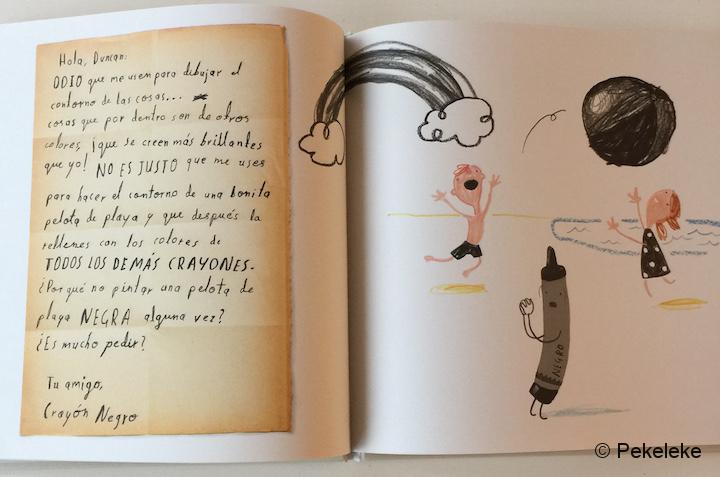 Hola, Duncan:
ODIO que me usen para dibujar el
contorno de las cosas...
cosas que por dentro son de otros
colores, ¡que se creen más brillantes
que yo! NO ES JUSTO que me uses
para hacer el contorno de una bonita
pelota de playa y que después la
rellenes con los colores de
TODOS LOS DEMÁS CRAYONES.
¿Por qué no pintar una pelota de
playa NEGRA alguna vez?
¿Es mucho pedir?
Tu amigo,
Crayón Negro
NEGRO
© Pekeleke